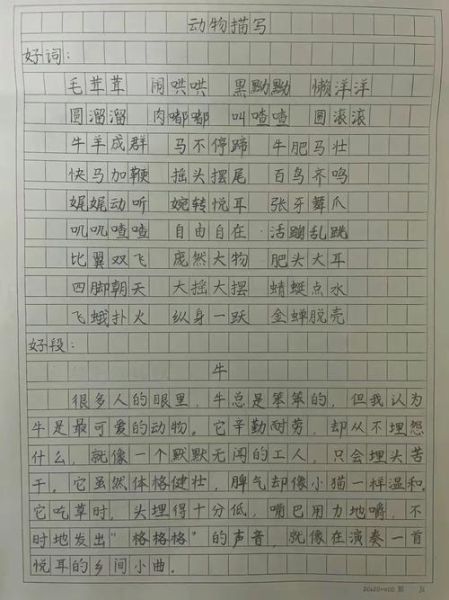 动物描写
好词：
毛茸茸 闹哄哄 黑黝黝 懒洋洋
圆溜溜 肉嘟嘟 叫喳喳 圆滚滚
牛羊成群 马不停蹄 牛肥马壮
快马加鞭 摇头摆尾 百鸟齐鸣
娓娓动听 婉转悦耳 张牙舞爪
叽叽喳喳 自由自在 活蹦乱跳
比翼双飞 庞然大物 肥头大耳
四脚朝天 大摇大摆 蜻蜓点水
飞蛾扑火 纵身一跃 金蝉脱壳
好段：
牛
很多人的眼里，牛总是笨笨的，但我认为
牛是最可爱的动物。它辛勤耐劳，却从不埋怨
什么，就像一个默默无闻的工人，只会埋头苦
干。它虽然体格健壮，脾气却像小猫一样温和。
它吃草时，头埋得十分低，嘴巴用力地嚼，不
时地发出“格格格”的声音，就像在演奏一首
悦耳的乡间小曲。